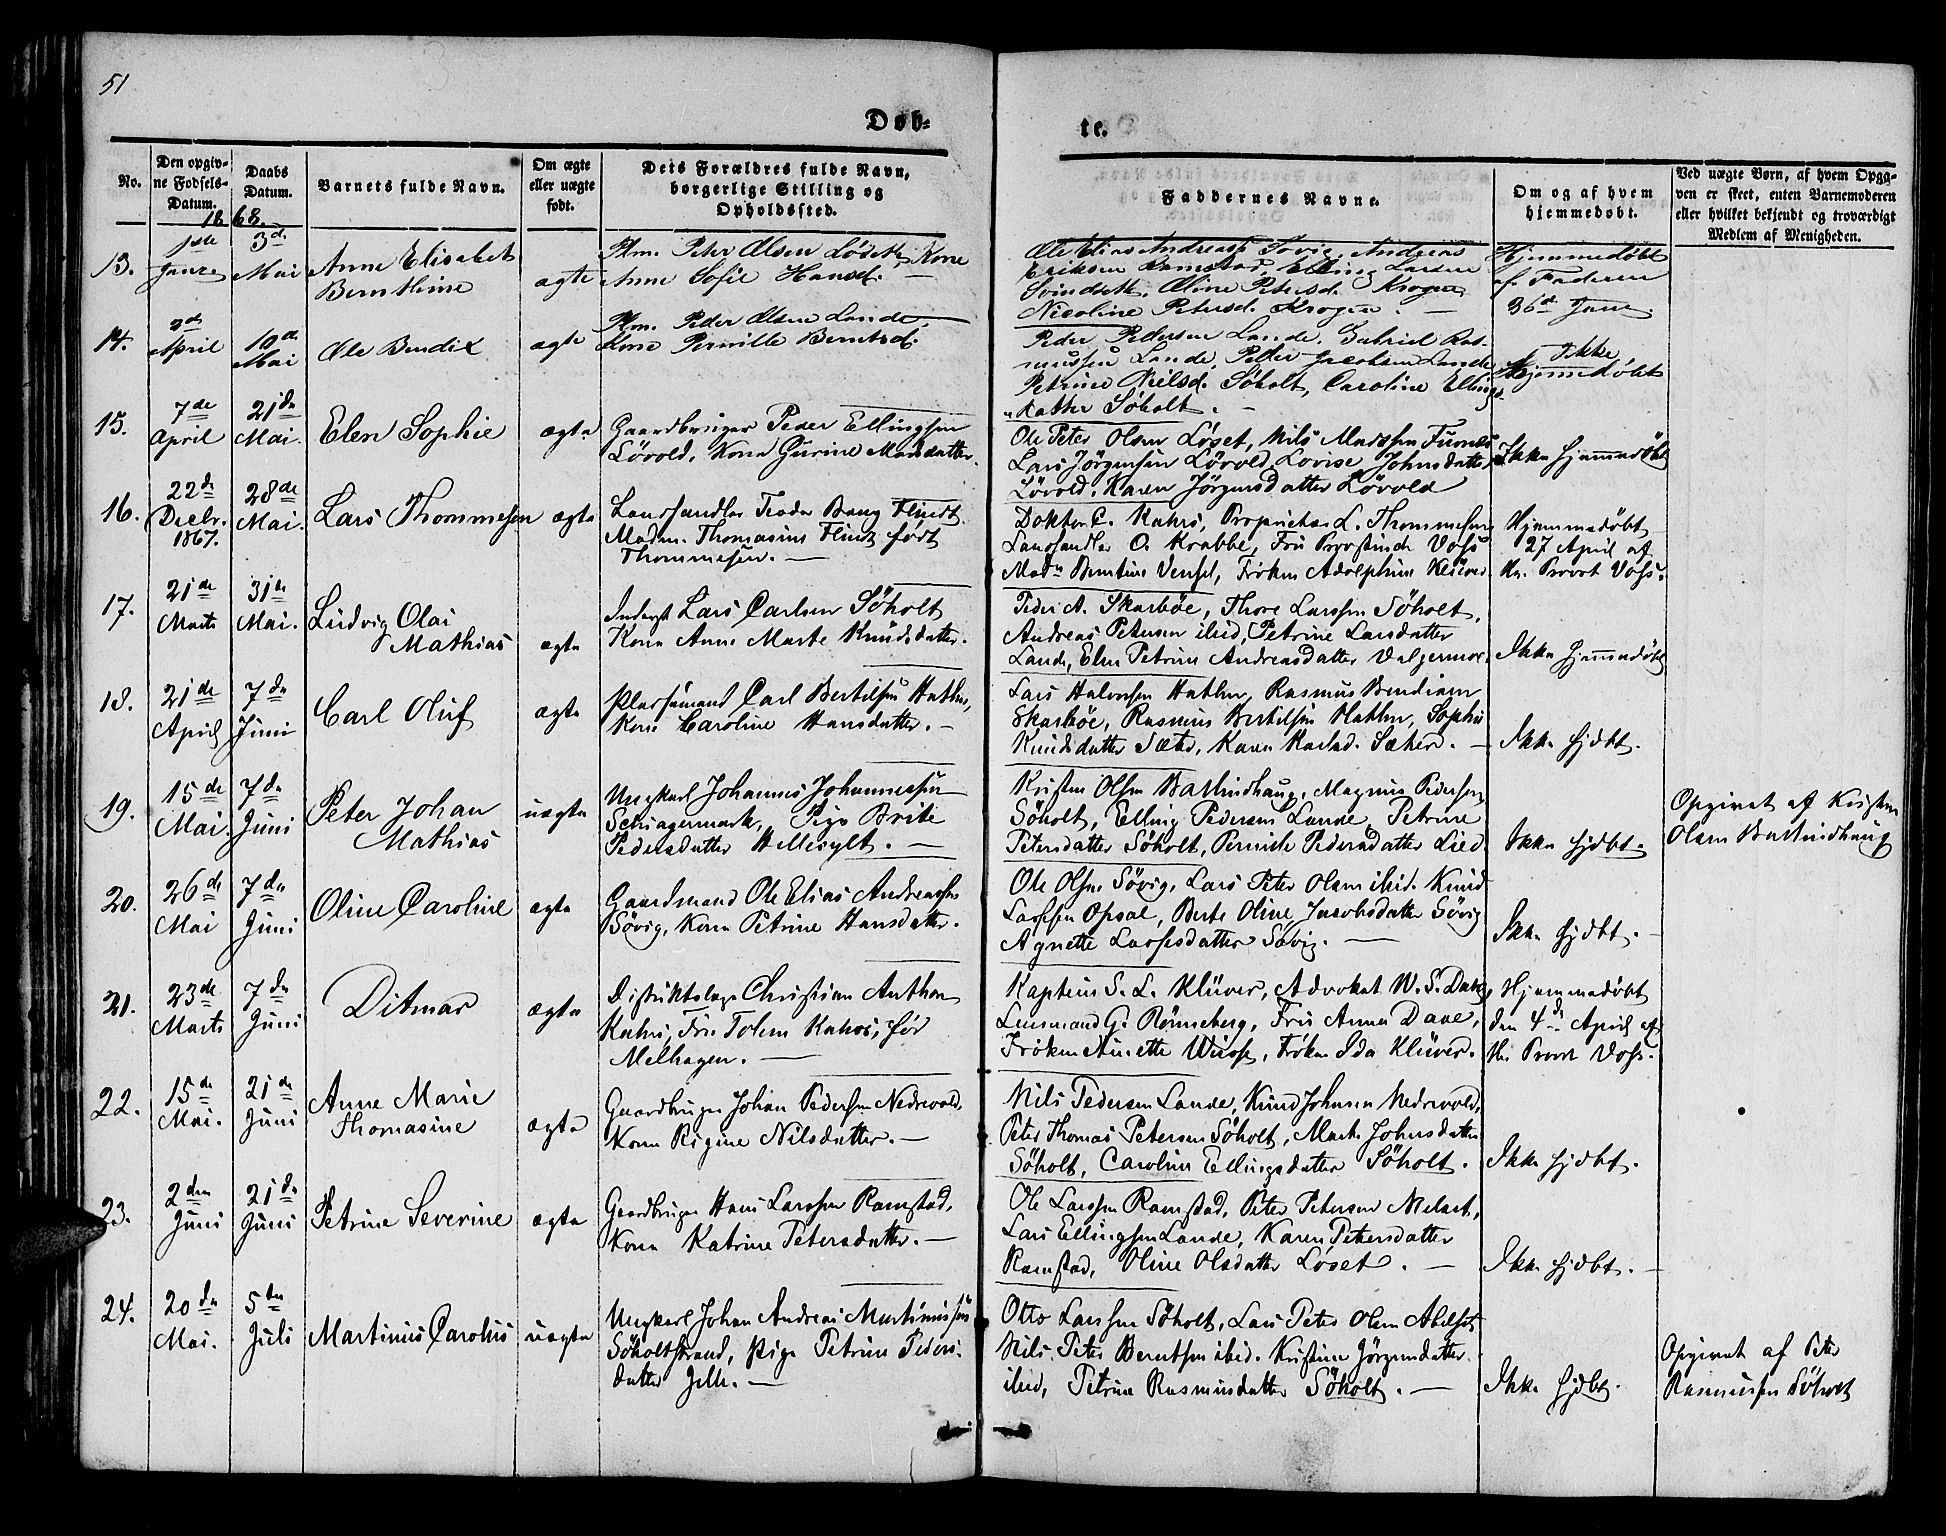 51
Døb-
te.
No.
Den opgiv-
ne Fødsels-
Datum.
Daabs
Datum.
Barnets fulde Navn.
Om ægte
eller uægte
født.
Dets Forældres fulde Navn,
borgerlige Stilling og
Opholdssted.
Faddernes Navne.
Om og af hvem
hjemmedøbt.
Ved uægte Børn, af hvem Opga-
ven er skeet, enten Barnemoderen
eller hvilket bekjendt og troværdigt
Medlem af Menigheden.
1868.
13.
1ste
3die
Mai
Anne Elisabet
Bernthine
ægte
Peter Olsen Kone
Anne Sofie Hansd.
Ole Elias Andreass. Søvig, Andreas
Eriksen Ramstad, Elling Larsen
Svindseth, Oline Petersd. Krogen
Nicoline Petersd. Krogen.
Hjemmedøbt
af Faderen
14.
3de
April
10de
Mai
Ole Bendix
ægte
Peder Olsen Lande,
Kone Pernille Berntsd.
Peder Pedersen Lande, Gabriel Ras-
mussen Lande, Peder Jacobsen Lande
Petrine Nielsd. Søholt, Caroline Ellings-
datter Søholt.
Ikke
hjemmedøbt
15.
7de
April
21de
Mai.
Elen Sophie
ægte
Gaardbruger Peder Ellingsen
Løvold, Kone Gurine Madsdatter.
Ole Peter Olsen Løset, Nils Madssen Furnes
Lars Jørgensen Løvold, Lovise Johnsdatter
Løvold, Karen Jørgensdatter Løvold
Ikke hjemmedøbt
16.
22de
Decbr.
1867.
28de
Mai.
Lars Thommesen
ægte
Landhandler Peder Bang Flindt
Madm. Thomasine Flindt født
Thommesen.
Doktor C. Kahrs, Proprietær L. Thommesen
Landhandler O. Krabbe, Fru Provstinde Voss
Madm Berntine Vensel, Frøken Adolphine Klüver
Hjemmedøbt
27 April af
Hr. Provst Voss.
17.
21de
Marts
31te
Mai.
Ludvig Olai
Mathias
ægte
Inderst Lars Carlsen Søholt
Kone Anne Marte Knudsdatter.
Peder A. Skarbøe, Thore Larssen Søholt,
Andreas Petersen ibid, Petrine Larsdatter
Lande, Elen Petrine Andreasdatter Valgermoe.
Ikke hjemmedøbt
18.
21de
April
7de
Juni
Carl Oluf
ægte
Pladsemand Carl Bertilsen Hathen,
Kone Caroline Hansdatter.
Lars Halvorsen Hathen, Rasmus Bendixen
Skarbøe, Rasmus Bertilsen Hathen, Sophie
Knudsdatter Sæter, Karen Sæter.
Ikke hjdbt.
19.
15de
Mai.
7de
Juni
Peter Johan
Mathias
uægte
Ungkarl Johannes Johannessen
Pige Brite
Pedersdatter Hellesylt.
Kristen Olsen Ballindhaug, Magnus Pedersen
Søholt, Elling Pedersen Lande, Petrine
Petersdatter Søholt, Pernille Pedersdatter Lied.
Ikke hjdbt.
Opgivet af Kristen
Olsen Ballindhaug
20.
26de
Mai
7de
Juni
Oline Caroline
ægte
Gaardmand Ole Elias Andreassen
Søvig, Kone Petrine Hansdatter.
Ole Olsen Søvig, Lars Peter Olsen ibid. Knud
Larssen Opsal, Berte Oline Jacobsdatter Søvig
Agnette Larsesdatter Søvig.
Ikke hjdbt.
21.
23de
Marts
7de
Juni
Ditmar
ægte
Distriktslæge Christian Anthon
Kahrs, Fru Kahrs, før
Melhagen.
Kaptein S. L. Klüver, Advokat W. S. Dave,
Lensmand G. Rønneberg, Fru Anna Dave,
Frøken Anette Wiese, Frøken Ida Klüver.
Hjemmedøbt
den 4de April af
Hr. Provst Voss.
22.
15de
Mai.
21de
Juni
Anne Marie
Thomasine
ægte
Gaardbruger Johan Pedersen Nedrevold,
Kone Regine Nilsdatter.
Nils Pedersen Lande, Knud Johnsen Nedrevold,
Peter Thomas Petersen Søholt, Marte Johnsdatter
Søholt, Caroline Ellingsdatter Søholt.
Ikke hjdbt.
23.
2den
Juni
21de
Juni
Petrine Severine
ægte
Gaardbruger Hans Larssen Ramstad,
Kone Katrine Petersdatter.
Ole Larssen Ramstad, Peter Petersen Melset,
Lars Ellingsen Lande, Karen Petersdatter
Ramstad, Oline Olsdatter Løset.
Ikke hjdbt.
24.
20de
Mai.
5te
Juli
Martinus Carolus
uægte
Ungkarl Johan Andreas Martinussen
Søholtstrand, Pige Petrine Peders-
datter
Otto Larssen Søholt, Lars Peter Olsen Abelset,
Nils Peter Berntsen ibid. Kristine Jørgensdatter
ibid, Petrine Rasmusdatter Søholt.
Ikke hjdbt.
Opgivet af Peter
Rasmussen Søholt